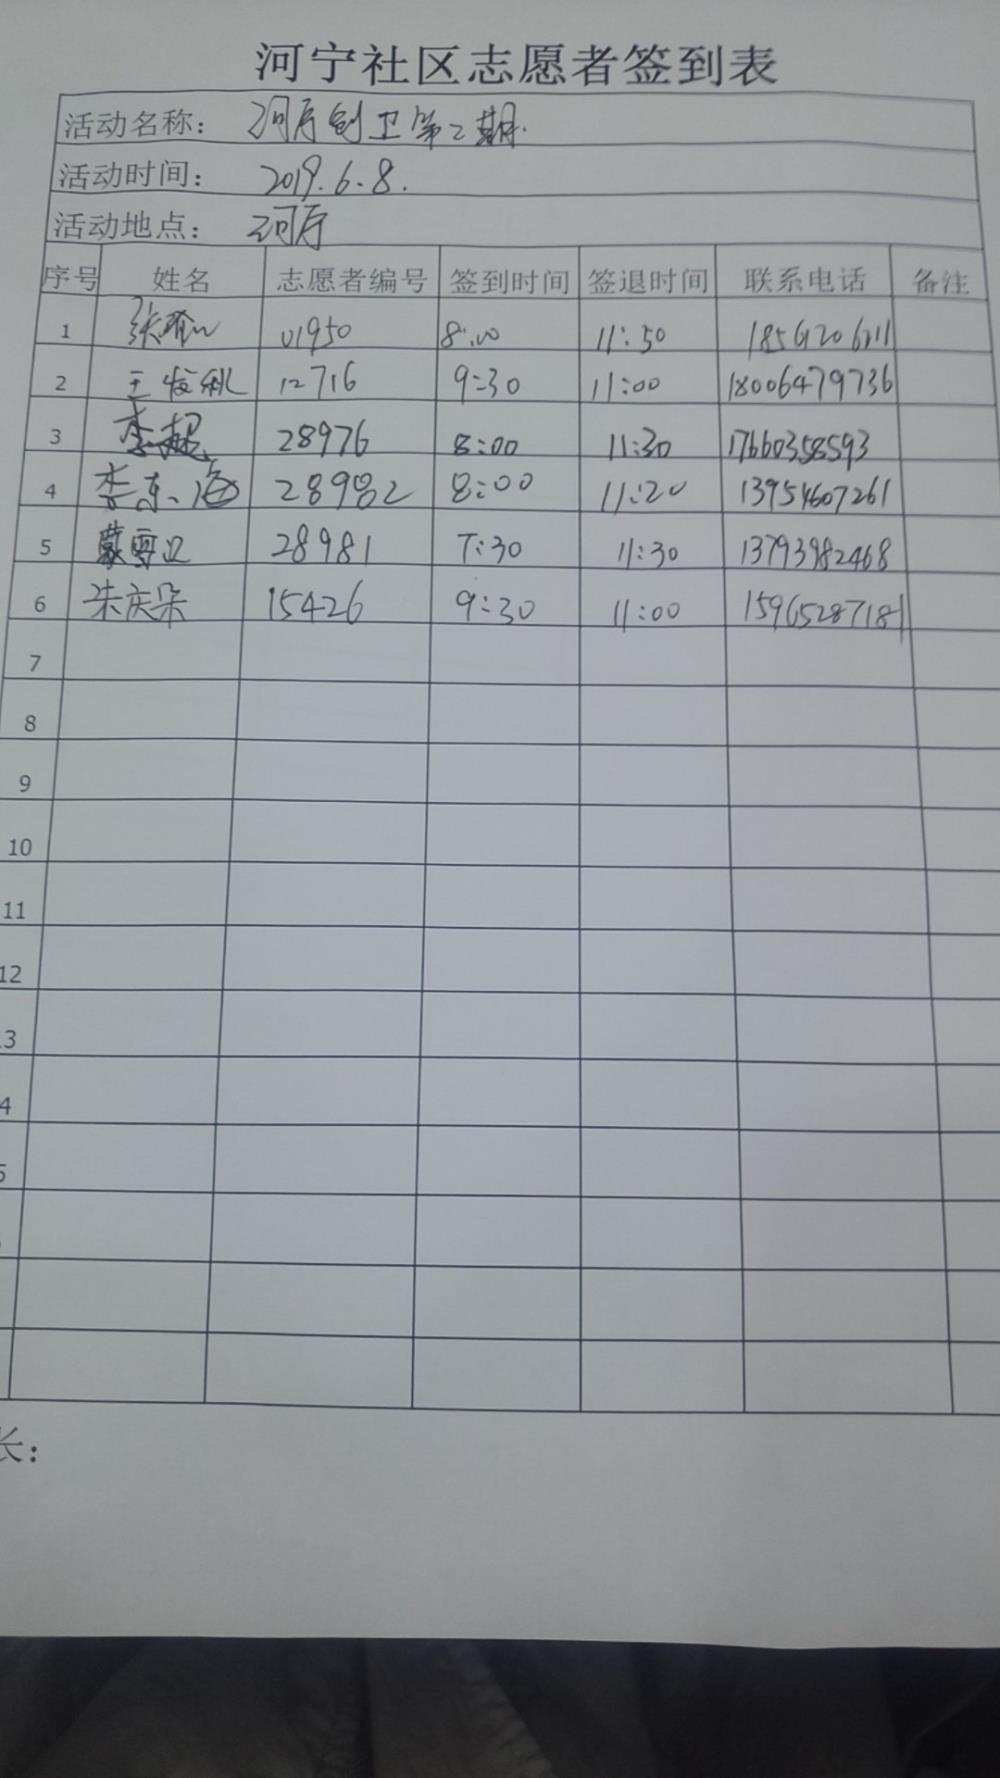 河宁社区志愿者签到表
活动名称： 河宁创卫第二期.
活动时间： 2019.6.8.
活动地点： 河宁
序号 姓名 志愿者编号 签到时间 签退时间 联系电话 备注
1 01950 8:00 11:50
2 12716 9:30 11:00 18006479736
3 李超 28976 8:00 11:30 17660358593
4 李东海 28982 8:00 11:20 13954607261
5 28981 7:30 11:30 13793982468
6 朱庆朵 15426 9:30 11:00 15965287181
7
8
9
10
11
12
3
4
5
长：